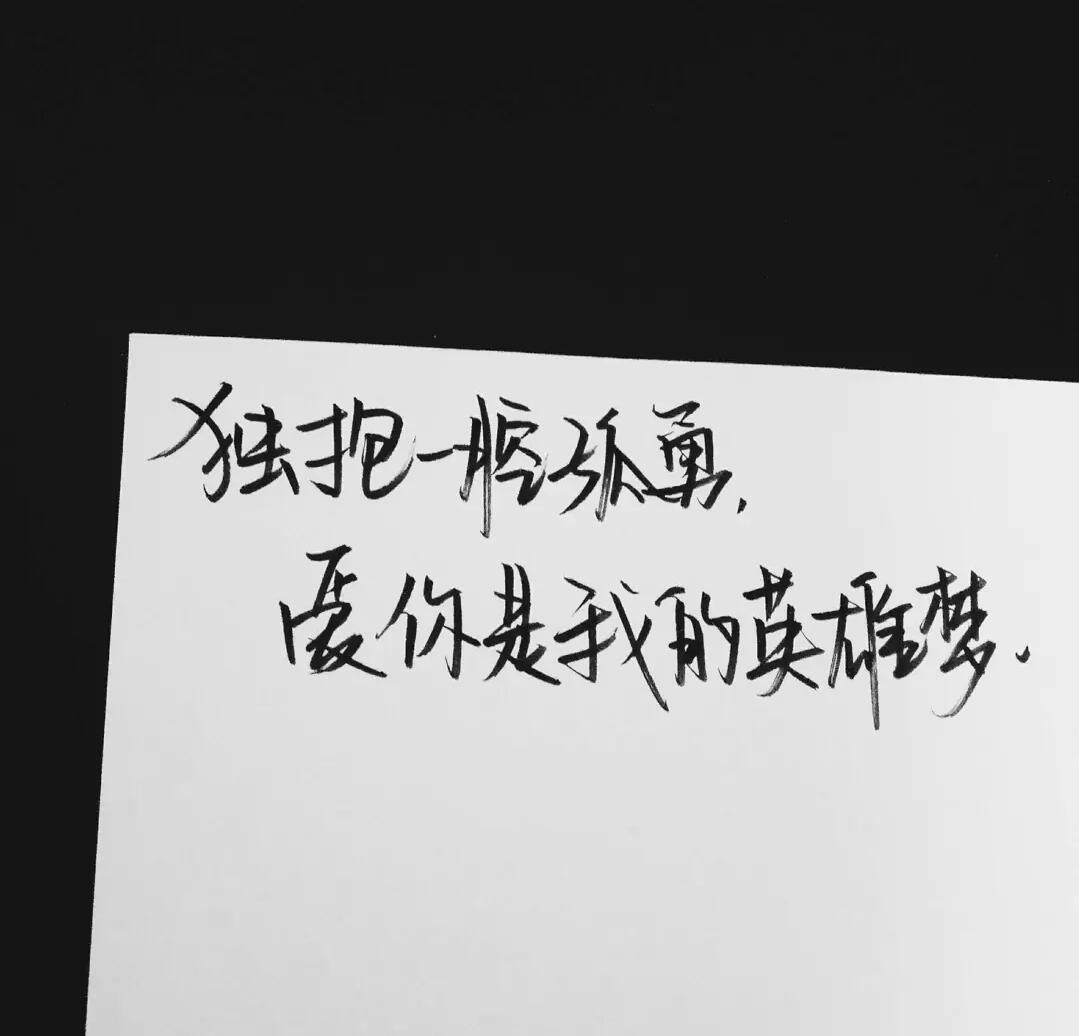 独抱一腔孤勇,
爱你是我的英雄梦.